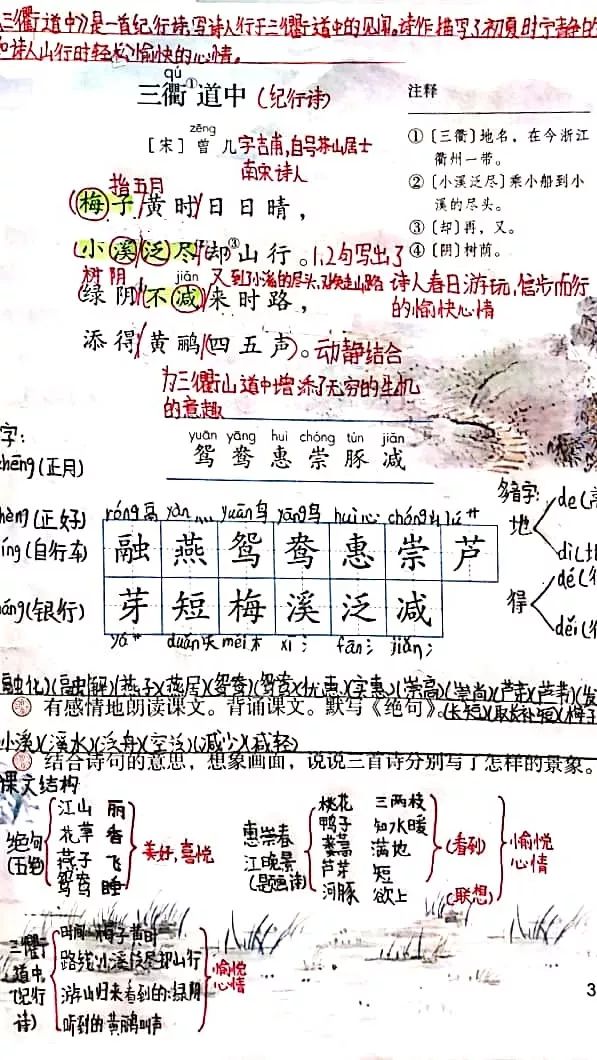 《三衢道中》是一首纪行诗,写诗人行于三衢道中的见闻。诗作描写了初夏时宁静的
和诗人山行时轻松愉快的心情。
qú
三衢①道中(纪行诗)
zēng
[宋]曾几字吉甫,自号茶山居士
南宋诗人
指五月
(梅子/黄时/日日晴,
小溪/泛尽②/却③山行。1,2句写出了
树阴 jiǎn 又到了小溪的尽头,又换走山路 诗人春日游玩,信步而行
的愉快心情
(绿阴④/不减/来时路,
添得/黄鹂/四五声)。动静结合
为三衢山道中增添了无穷的生机
的意趣
注释
①〔三衢〕地名,在今浙江
衢州一带。
②〔小溪泛尽〕乘小船到小
溪的尽头。
③〔却〕再,又。
④〔阴〕树荫。
yuān yāng huì chóng tún jiǎn
鸳鸯惠崇豚减
字:
zhēng(正月)
zhèng(正好)
xíng(自行车)
háng(银行)
róng鬲 yàn灬 yuān鸟 yāng鸟 huì心 chóng山 lú艹
融燕鸳鸯惠崇芦
芽短梅溪泛减
yá艹 duǎn矢 méi木 xī氵 fàn氵 jiǎn冫
多音字:
地 de(高
dì(地
得 dé(得
děi(得
融化)(融解)(燕子)(燕居)(鸳鸯)(鸳鸯)(优惠)(实惠)(崇高)(崇尚)(芦苇)(芦苇)(发
有感情地朗读课文。背诵课文。默写《绝句》。(长短)(取长补短)(梅子
小溪)(溪水)(泛舟)(空泛)(减少)(减轻)
结合诗句的意思,想象画面,说说三首诗分别写了怎样的景象。
课文结构
绝句
(五绝)
江山 丽
花草 香
燕子 飞
鸳鸯 睡
美好,喜悦
惠崇春
江晚景
(题画诗)
桃花 三两枝
鸭子 知水暖
蒌蒿 满地
芦芽 短
河豚 欲上
(看到)
(联想)
愉悦
心情
三衢
道中
(纪行
诗)
时间:梅子黄时
路线:小溪泛尽却山行
游山归来看到的:绿阴
听到的黄鹂叫声
愉悦
心情
3